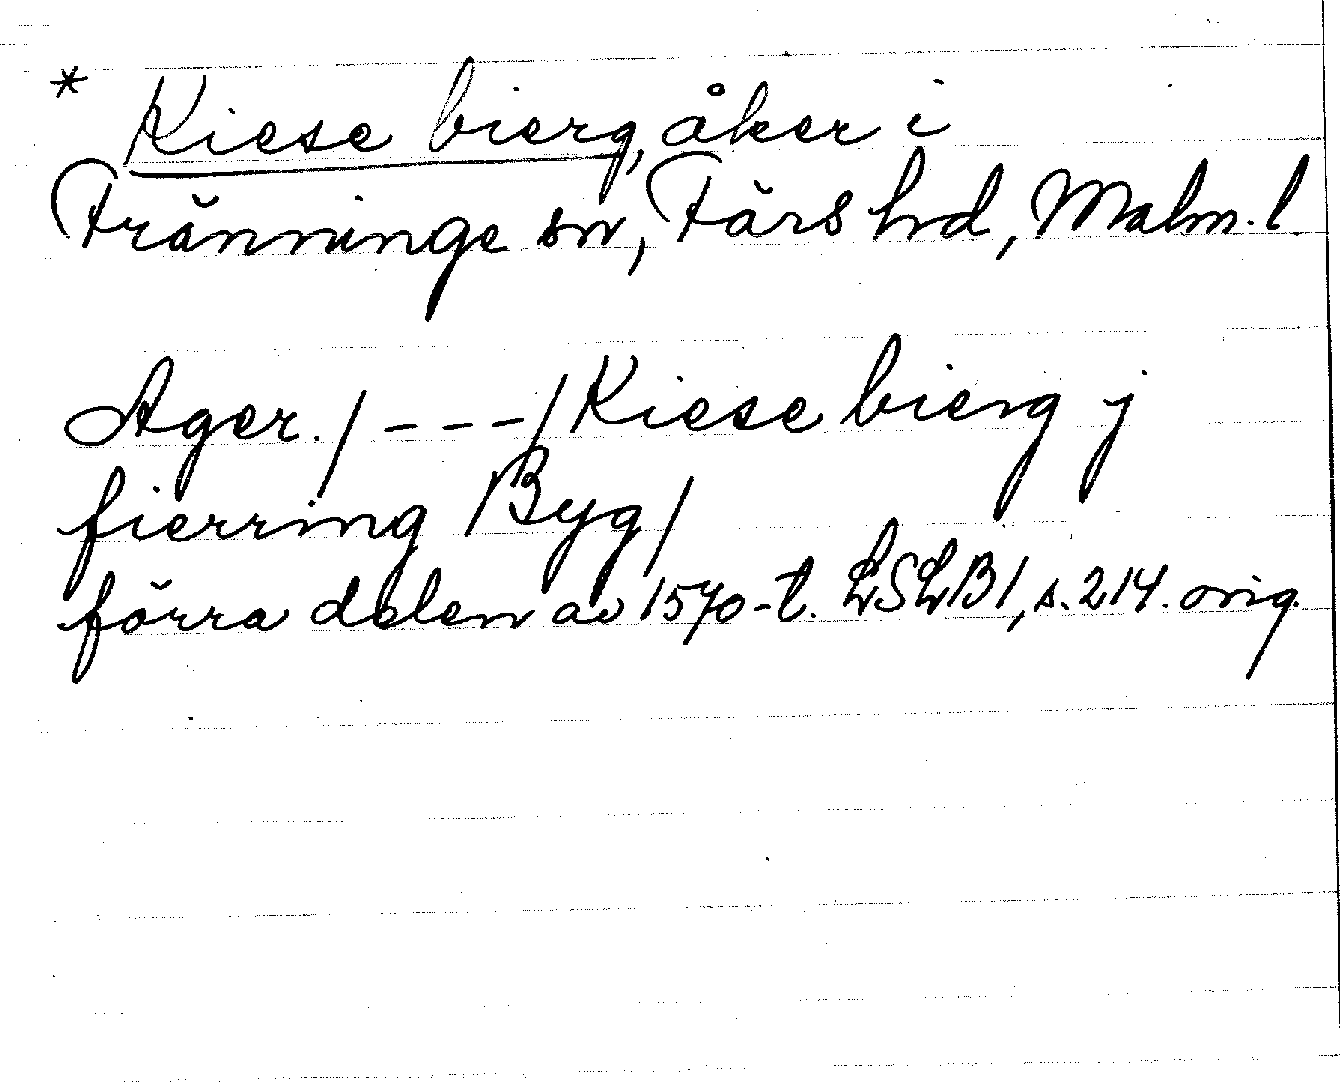 * Kiese bierg, åker i
Fränninge sn, Färs hrd, Malm. l.
Ager. / - - - / Kiese bierg j
fierring Byg /
förra delen av 1570-t. LSLB1, s. 214. orig.